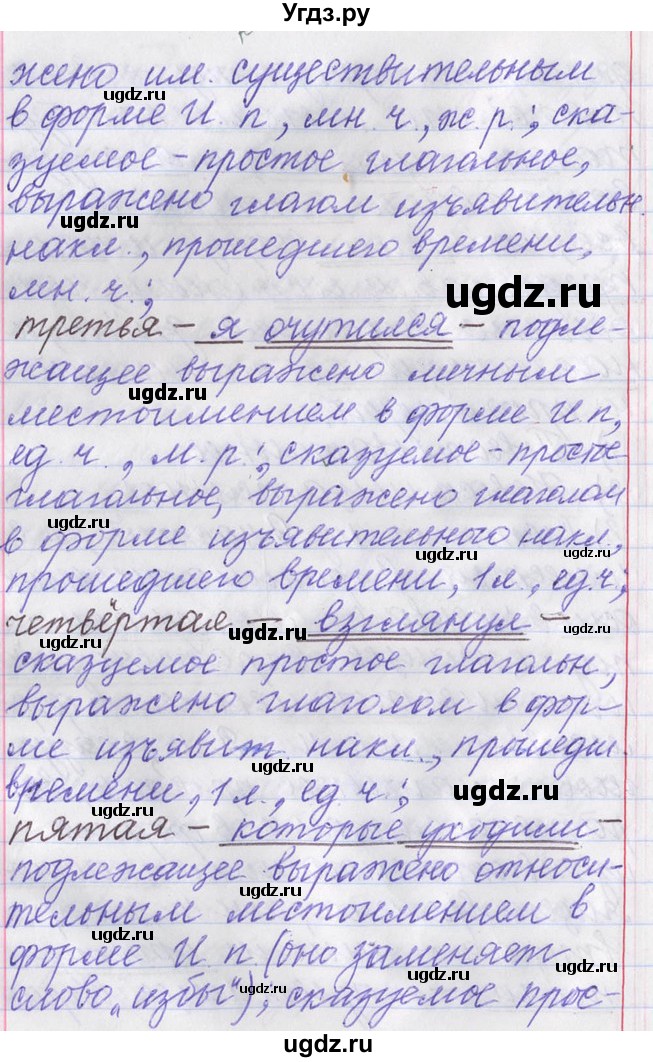 Угдз.ру
жено им. существительным
ugdz.ru
в форме И. п, мн. ч., ж. р.; ска-
ugdz.ru
зуемое - простое глагольное,
выражено глагол изъявительн.
ugdz.ru
ugdz.ru
накл., прошедшего времени,
мн. ч.;
ugdz.ru
третья - я очутился - подле-
жащее выражено личным
ugdz.ru
местоимением в форме И. п,
ед. ч., м. р.; сказуемое - простое
ugdz.ru
ugdz.ru
глагольное, выражено глаголом
ugdz.ru
в форме изъявительного накл,
ugdz.ru
ugdz.ru
прошедшего времени, 1 л., ед. ч;
четвёртая - взглянул -
ugdz.ru
ugdz.ru
сказуемое простое глагольн,
выражено глаголом в фор-
ugdz.ru
ме изъявит накл., прошедш.
времени, 1 л., ед. ч.;
ugdz.ru
пятая - которые уходили -
подлежащее выражено относи-
ugdz.ru
тельным местоимением в
ugdz.ru
форме И. п. (оно заменяет
ugdz.ru
слово „избы"), сказуемое прос-
ugdz.ru
ugdz.ru
ugdz.ru